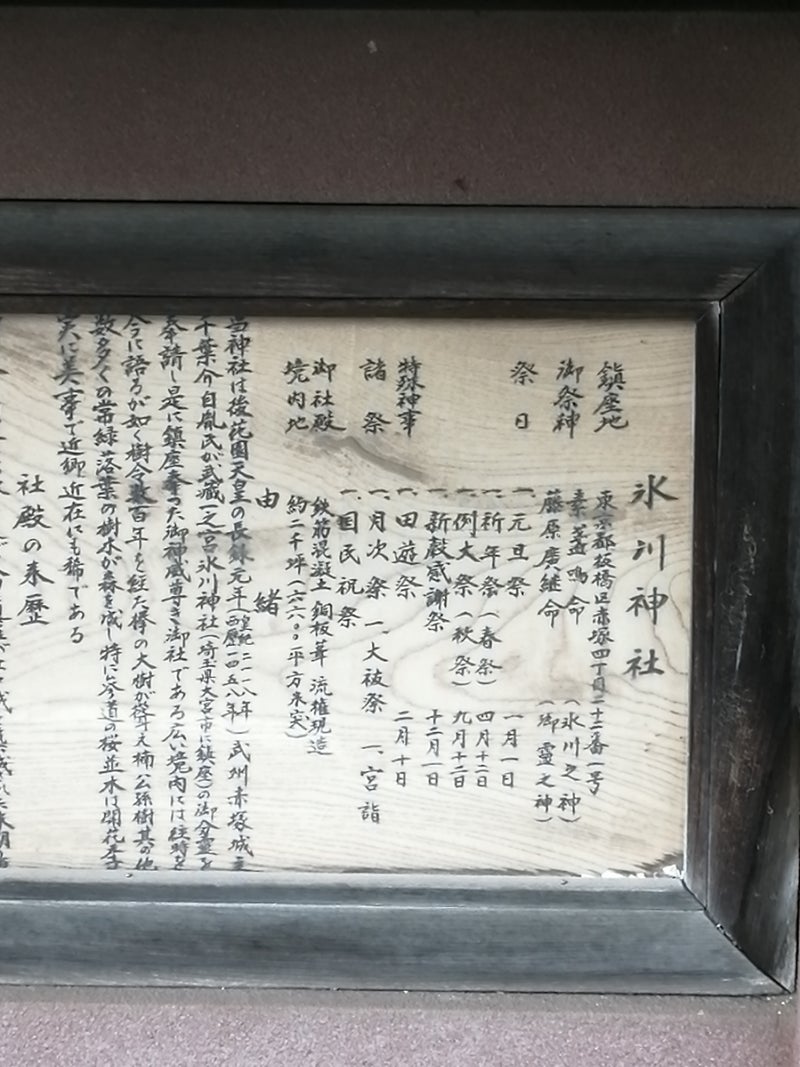 氷川神社
鎮座地 東京都板橋区赤塚四丁目二十二番一号
御祭神 素盞嗚命 (氷川之神)
藤原廣継命 (御霊之神)
祭日 一、元旦祭 一月一日
一、祈年祭(春祭) 四月十二日
一、例大祭(秋祭) 九月十二日
一、新穀感謝祭 十二月一日
特殊神事 一、田遊祭 二月十日
諸祭 一、月次祭 一、大祓祭 一、宮詣
一、国民祝祭
御社殿 鉄筋混凝土 銅板葺 流権現造
境内地 約二千坪(六六〇〇平方米突)
由緒
当神社は後花園天皇の長禄元年(皇紀二一一八年 西暦一四五八年)武州赤塚城主
千葉介自胤氏が武蔵一之宮氷川神社(埼玉県大宮市に鎮座)の御分霊を
奉請し是に鎮座奉った御神威尊き御社である広い境内には往時を
今に語るが如く樹令数百年を経た欅の大樹が聳え楠公孫樹其の他
数多くの常緑落葉の樹木が森を成し特に参道の桜並木は開花季
実に美事で近郷近在にも稀である
社殿の来歴